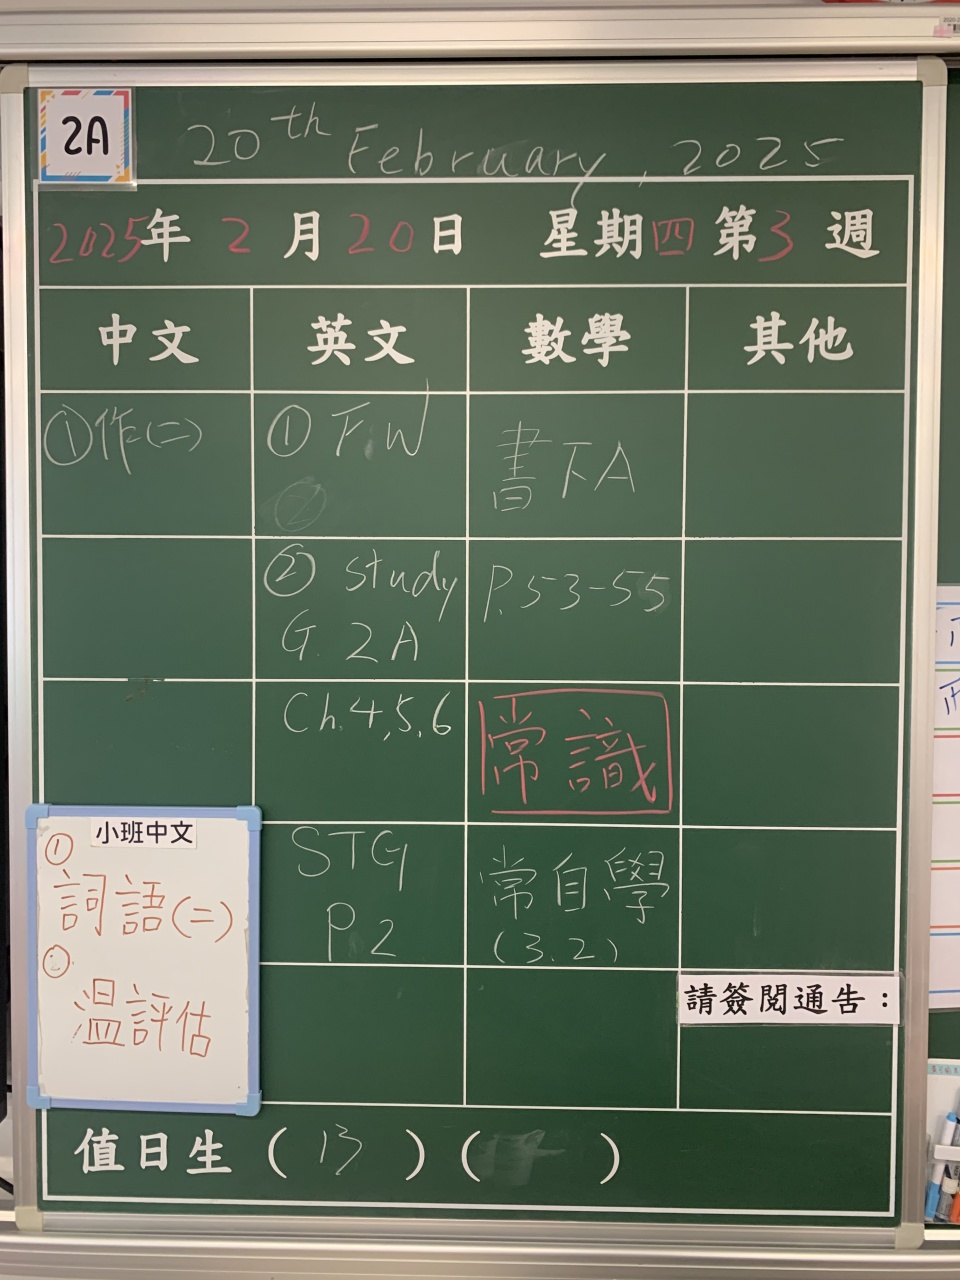 2A
20th February, 2025
2025年 2 月 20 日 星期四 第 3 週
中文 英文 數學 其他
①作(二)
① F.W
②
② study
G. 2A
Ch.4,5,6
STG
P.2
書下A
P.53-55
常識
常自學
(3.2)
小班中文
①
詞語(二)
②
溫評估
請簽閱通告：
值日生 ( 13 ) ( )